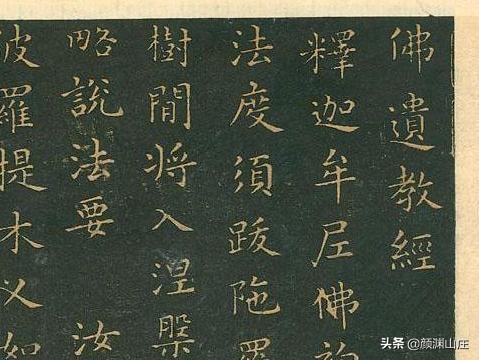 佛遺教經
釋迦牟尼佛初
法度須跋陁羅
樹間将入涅槃
略說法要 汝
波羅提木乂如
头条 @颜渊山庄